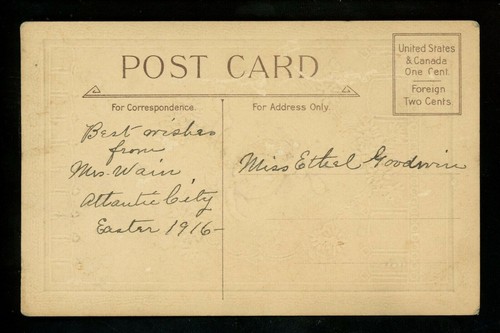 POST CARD
United States
& Canada
One Cent.
Foreign
Two Cents.
For Correspondence.
For Address Only.
Best wishes
from
Mrs. Wain,
Atlantic City
Easter 1916-
Miss Ethel Goodwin